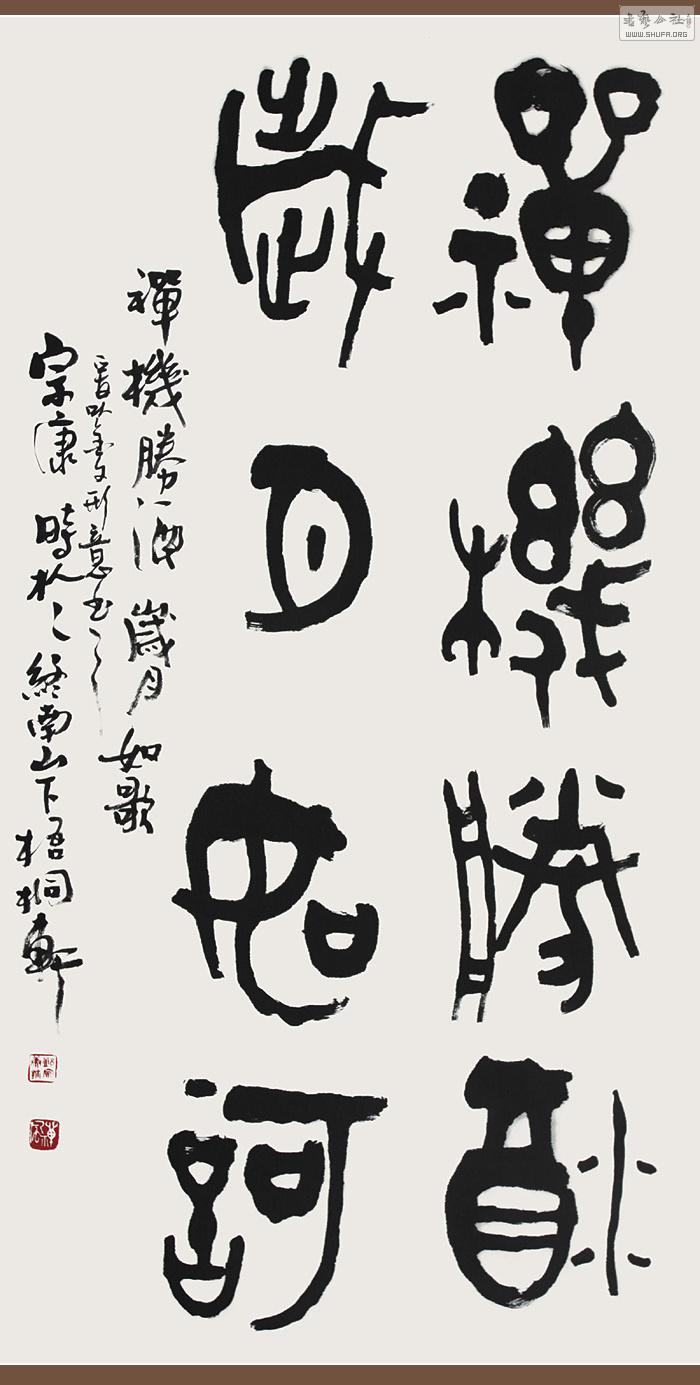 書藝公社
WWW.SHUFA.ORG
禪機勝酒
歲月如歌
禪機勝酒歲月如歌
以金文形意書之
宗康時於終南山下梧桐軒